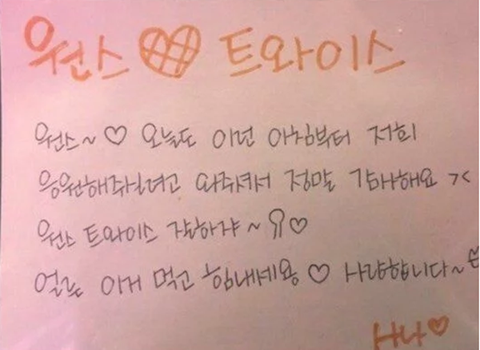 원스 ♡ 트와이스
원스~ ♡ 오늘도 이런 아침부터 저희
응원해주실려고 와주셔서 정말 감사해요 ><
원스 트와이스 잘하자~ ♡
얼른 이거 먹고 힘내세용 ♡ 사랑합니다~
나 ♡